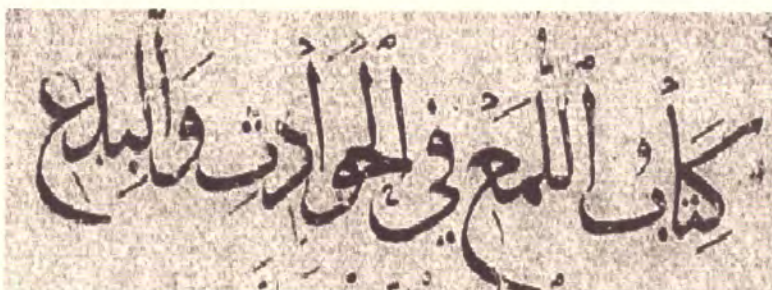 كِتَابُ ٱللُّمَعْ فِي ٱلْحَوَادِثِ وَٱلْبِدَعْ